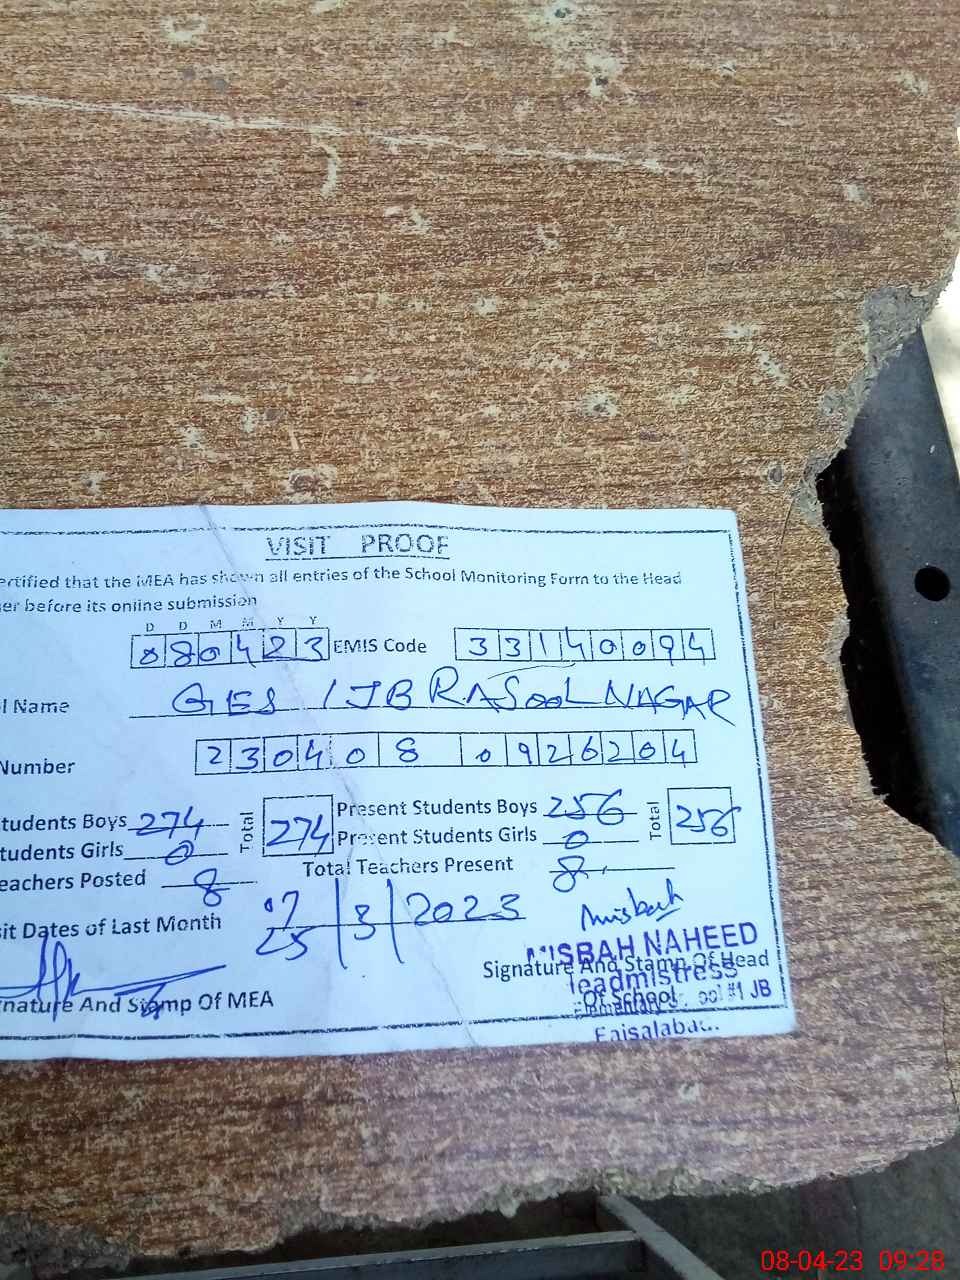 VISIT PROOF
ertified that the MEA has shown all entries of the School Monitoring Form to the Head
er before its online submission
D D M M Y Y
080423 EMIS Code 33140094
l Name GES 1JB RASOOL NAGAR
Number 230408 0926204
tudents Boys 274 Total 274 Present Students Boys 256 Total 256
tudents Girls 0 Present Students Girls 0
eachers Posted 8 Total Teachers Present 8
sit Dates of Last Month 25/3/2023
Misbah
MISBAH NAHEED
Signature And Stamp Of Head
Headmistress
Of School
Elementary #1 JB
nature And Stamp Of MEA
Faisalabad.
08-04-23 09:28